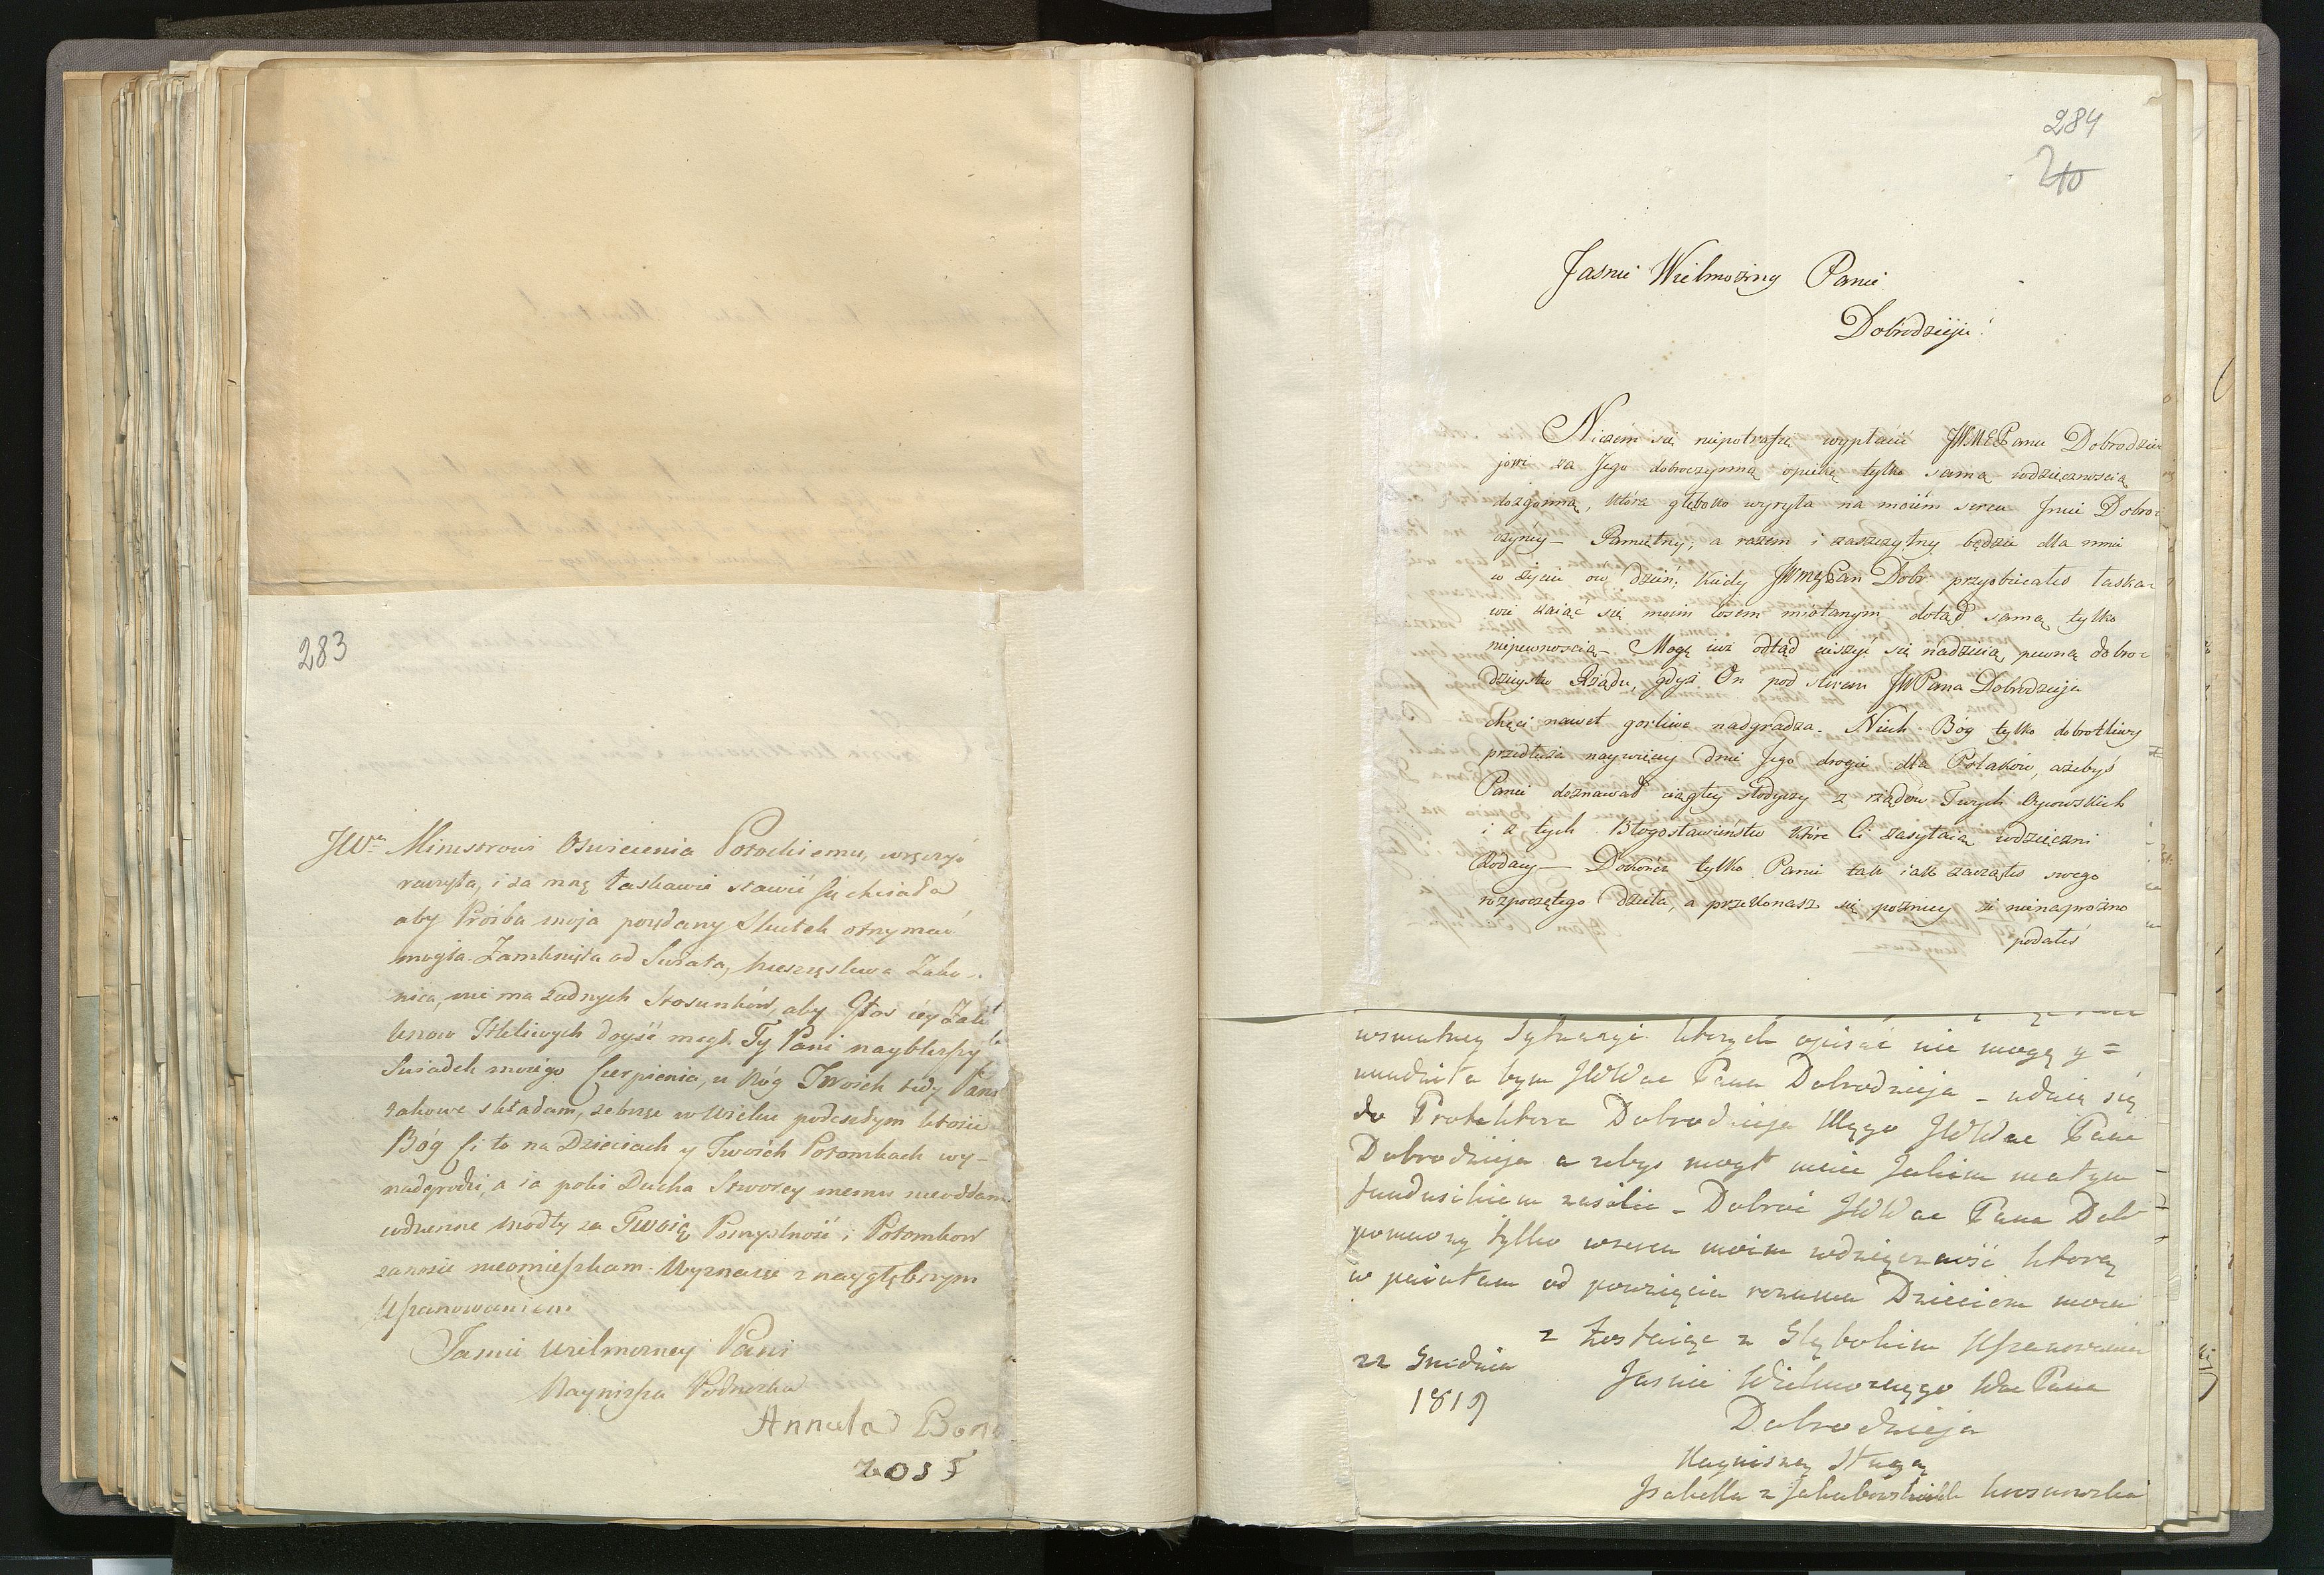 283
JWu Ministrowi Oswiecenia Potockiemu, wręczyć
raczyła, i za mną łaskawie stawić się chciała
aby Prośba moja porządany Skutek otrzymać
mogła. Zamknięta od Swiata, nieszczęsliwa Zako-
nica, nie ma żadnych Stosunków, aby Głos iéy
Litosciwych doyść mogł. Ty Pani naybliższy
Swiadek moiego Cierpienia, u Nóg Twoich tedy Pani
takowe składam, żebrze w wieku podeszłym litości
Bóg Ci to na Dzieciach y Twoich Potomkach wy-
nadgrodzi, a ia poki Ducha Stworcy memu nieoddam
codzienne modły za Twoią Pomyslność i Potomkow
zanosić nieomieszkam. Wyznaiąc z naygłębszym
Uszanowaniem
Jasnie Wielmozney Pani
Nayniższa Podnożka
Anniela Bon
284
210
Jasnie Wielmożny Panie
Dobrodzieju!
Niczem się niepotrafię wypłacić JWMCPanu Dobrodzie
jowi za Jego dobroczynną opiekę tylko samą wdzięcznością
dozgonną, która głęboko wyryta na moiém sercu Jmie Dobro-
czyncy – Pamiętny, a razem i zaszczytny będzie dla mnie
w życiu ow dzień, kiedy JWMCPan Dobr: przyobiecałeś łaska-
wie zaiąć się moim losem miotanym dotąd samą tylko
niepewnością – Mogę iuż odtąd cieszyć się nadzieią pewną dobro-
dzieystw Rządu, gdyż On pod sterem JWPana Dobrodzieja
chęci nawet gorliwe nadgradza. Niech Bóg tylko dobrotliwy
przedłuża naywięcey dnie Jego drogie dla Polaków, ażebyś
Panie doznawał ciągłey słodyczy z rządów Twych Oycowskich
i z tych Błogosławieństw które Ci zasyłaią wdzięczni
Rodacy – Dokończ tylko Panie tak iak zacząłeś swego
rozpoczętego dzieła, a przekonasz się pozniey że nienapróżno
podałeś
w smutney Sytuacyi ktorych opisać nie mogę y =
nudziła bym JWWae Pana Dobrodzieja – udaię się
do Protektora Dobrodzieja Mego JWWae Pana
Dobrodzieja a zebys mogł mnie Jakim małym
funduszikiem zasilic – Dobroć JWWae Pana Dob
pomnoży tylko w sercu moim wdzięczność ktorą
w paiałam od powzięcia rozumu Dzieciom moim
z Zostaięc z Głębokim Uszanowaniem
22 Grudnia
1819
Jasnie Wielmoznego Wae Pana
Dobrodzieja
Nayniszą Sługą
Isabella z Jakubowskich